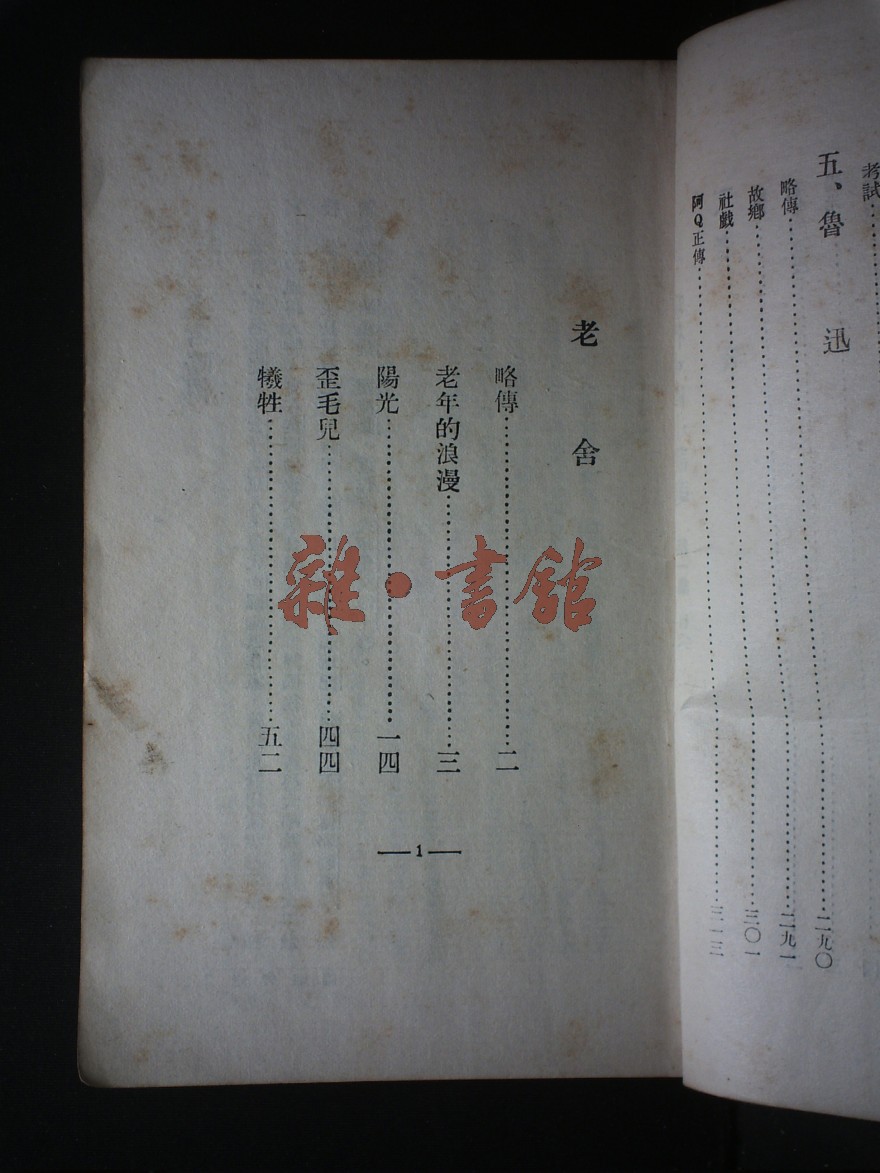 考試……
五、魯迅
略傳……二九〇
故鄉……二九一
社戲……三〇一
阿Q正傳……三一三
老舍
略傳……二
老年的浪漫……三
陽光……一四
歪毛兒……四四
犧牲……五二
—1—
雜·書館